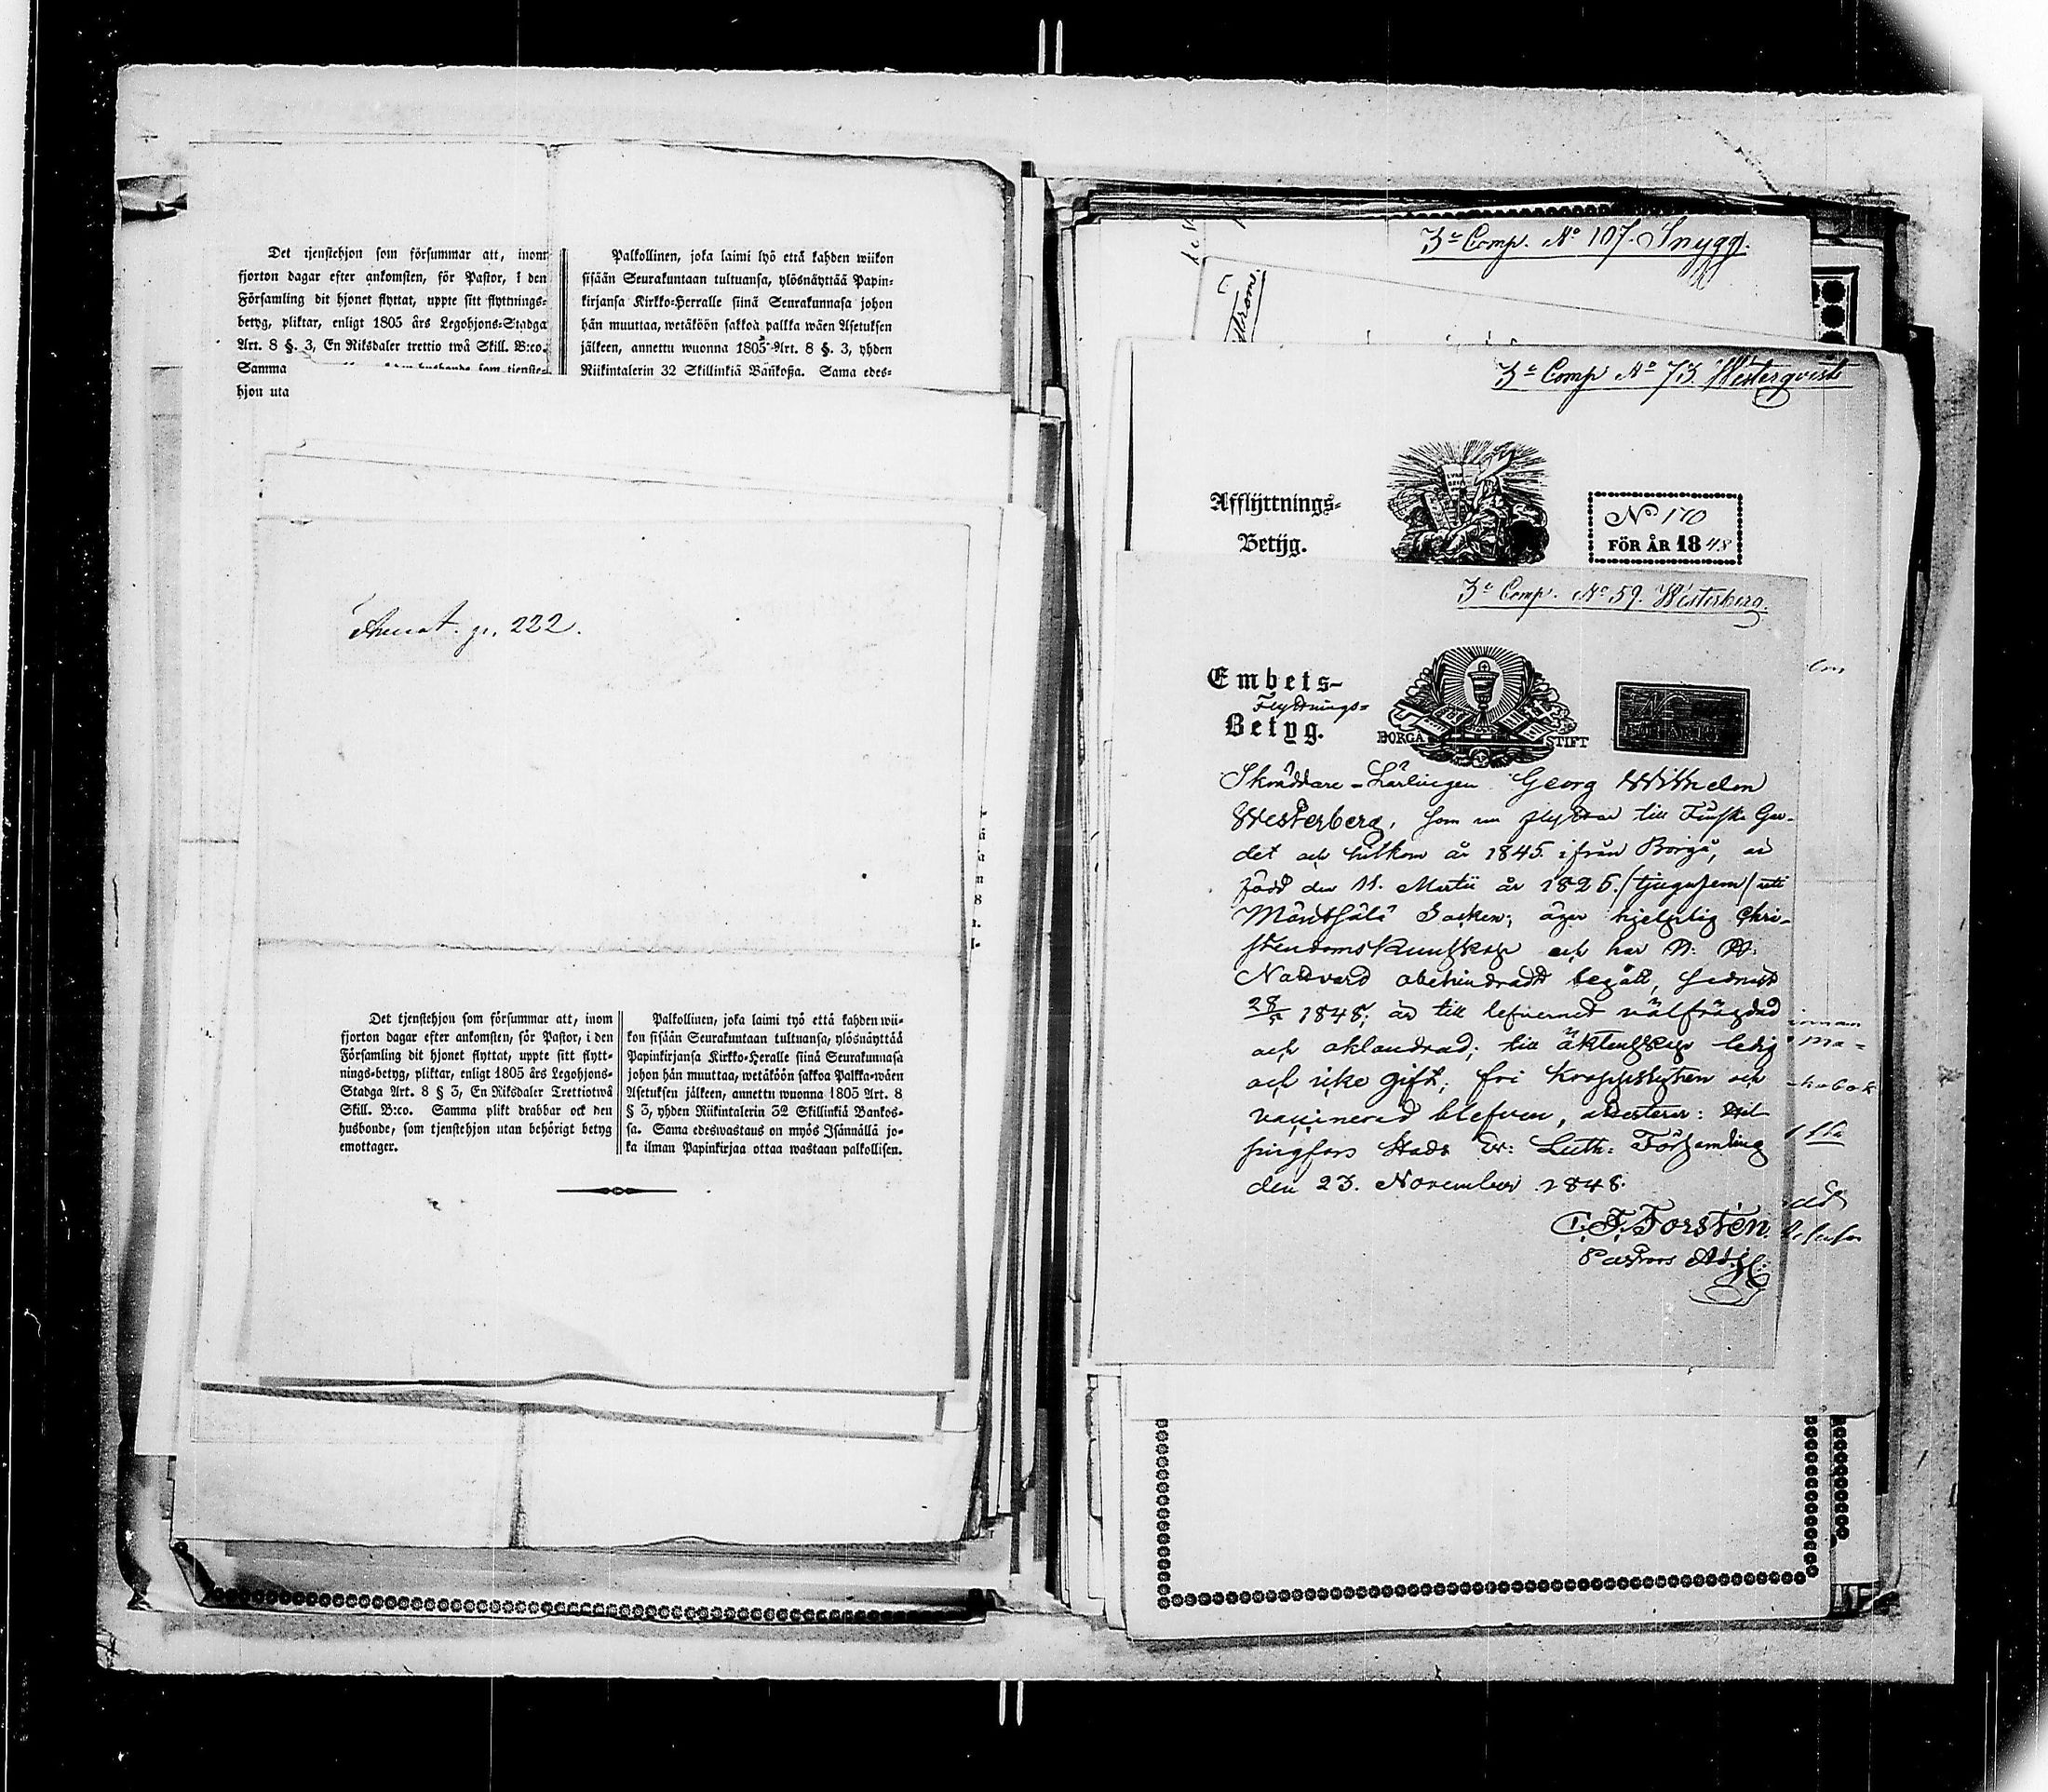 Det tjenstehjon som försummar att, inom
fjorton dagar efter ankomsten, för Pastor, i den
Församling dit hjonet flyttat, uppte sitt flyttnings-
betyg, pliktar, enligt 1805 års Legohjons-Stadga
Art. 8 §. 3, En Riksdaler trettio twå Skill. B:co.
Samma husbonde som tjenste-
hjon uta
Palkollinen, joka laimi lyö että kahden wiikon
sisään Seurakuntaan tultuansa, ylösnäyttää Papin-
kirjansa Kirkko-Herralle siinä Seurakunnasa johon
hän muuttaa, wetäköön sakkoa palkka wäen Asetuksen
jälkeen, annettu wuonna 1805 Art. 8 §. 3, yhden
Riikintalerin 32 Skillinkiä Bankoßa. Sama edes-
222.
Det tjenstehjon som försummar att, inom
fjorton dagar efter ankomsten, för Pastor, i den
Församling dit hjonet flyttat, uppte sitt flytt-
nings-betyg, pliktar, enligt 1805 års Legohjons-
Stadga Art. 8 § 3, En Riksdaler Trettiotwå
Skill. B:co. Samma plikt drabbar ock den
husbonde, som tjenstehjon utan behörigt betyg
emottager.
Palkollinen, joka laimi lyö että kahden wii-
kon sisään Seurakuntaan tultuansa, ylösnäyttää
Papinkirjansa Kirkko-Heralle siinä Seurakunnasa
johon hän muuttaa, wetäköön sakkoa Palkka-wäen
Asetuksen jälkeen, annettu wuonna 1805 Art. 8
§ 3, yhden Riikintalerin 32 Skillinkiä Bankos-
sa. Sama edeswastaus on myös Isännällä jo-
ka ilman Papinkirjaa ottaa wastaan palkollisen.
3e Comp. No 107. Snygg.
ström.
3e Comp No 73. Westerqvist
Afflyttnings-
Betyg.
No 170
FÖR ÅR 1848
3e Comp. No 59. Westerberg.
Embets-
Flyttnings-
Betyg.
BORGÅ STIFT
Skräddare-Lärlingen Georg Wilhelm
Westerberg, som nu flyttar till Finska Gar-
det och hitkom år 1845 ifrån Borgå, är
född den 11. Martii år 1825 /tjugufem/ uti
Mäntsälä Socken; äger hjelplig Chri-
stendomskunskap och har H. H.
Nattvard obehindradt begått, sednast
1848; är till lefvernet välfrägdad
och oklandrad; till äktenskap ledig
och icke gift; fri kroppslyten och
vaccinerad blefven, attesterar: Hel-
singfors Stads Ev: Luth: Församling
den 23. November 1848.
C. F. Forstén.
Pastors Adj.